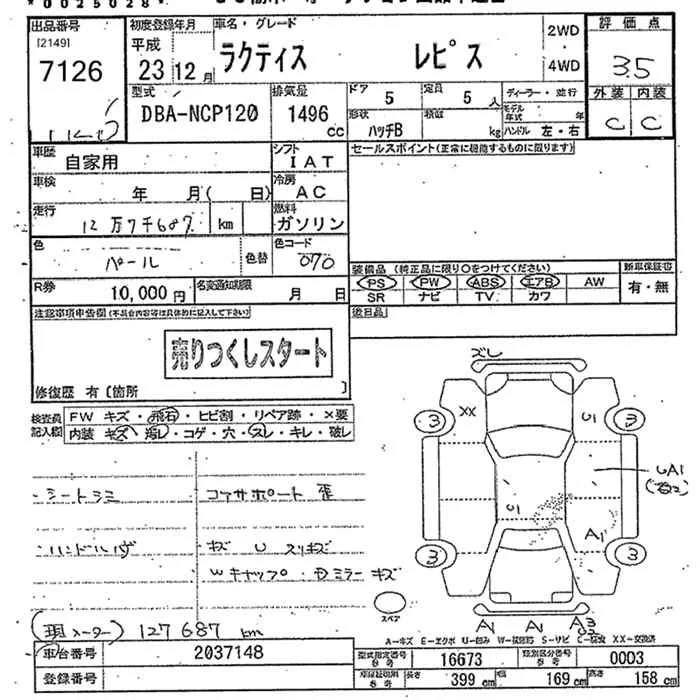 *0025028*
出品番号 初度登録年月 車名・グレード 2WD ・ 4WD 評価点
[2149] 平成
7126 23 12月 ラクティス レピス 3.5
型式 排気量 ドア 定員 ディーラー・並行 外装 内装
DBA-NCP120 1496cc 5 5人 モデル年式 年
形状 積載 ハッチB kg ハンドル 左・右 C C
車歴 自家用 シフト IAT セールスポイント(正常に機能するものに限ります)
車検 年 月( 日) 冷房 AC
走行 12万7千687 km 燃料 ガソリン
色 パール 色替 色コード 070
装備品(純正品に限り〇をつけてください) 新車保証書
R券 10,000円 名変通知期限 月 日
PS PW ABS エアB AW 有・無
SR ナビ TV カワ
注意事項申告欄(不具合内容等は具体的に記入して下さい) 後日品
売りつくしスタート
修復歴 有〔箇所 〕
検査員記入欄 FW キズ・飛石・ヒビ割・リペア跡・×要
内装 キズ・汚レ・コゲ・穴・スレ・キレ・破レ
ズレ
XX U1
3 3
UA1
U1
A1
3 3
シートシミ コアサポート歪
キズ U スリキズ
Wキャップ・Dミラーキズ
スペア
A1 A1 A3
現メーター 127687 km
A=キズ E=エクボ U=凹み W=波状 S=サビ C=腐蝕 XX=交換済
車台番号 2037148 型式指定番号 参考 16673 類別区分番号 参考 0003
登録番号 長さ 399 cm 幅 169 cm 高さ 158 cm